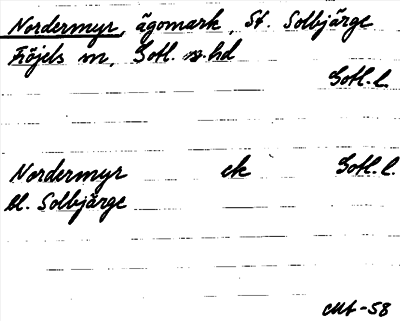 Nordermyr, ägomark, St. Solbjärge
Fröjels sn, Gotl. s. hd
Gotl. l.
Nordermyr ek Gotl. l.
bl. Solbjärge
-58